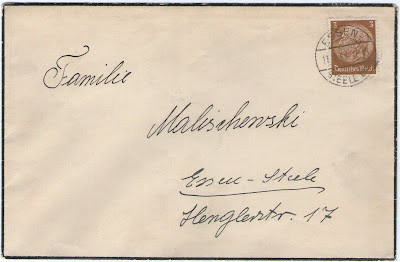 ESSEN-
3 3
Deutsches Reich
STEELE
Familie
Malischewski
Essen-Steele
Henglerstr. 17